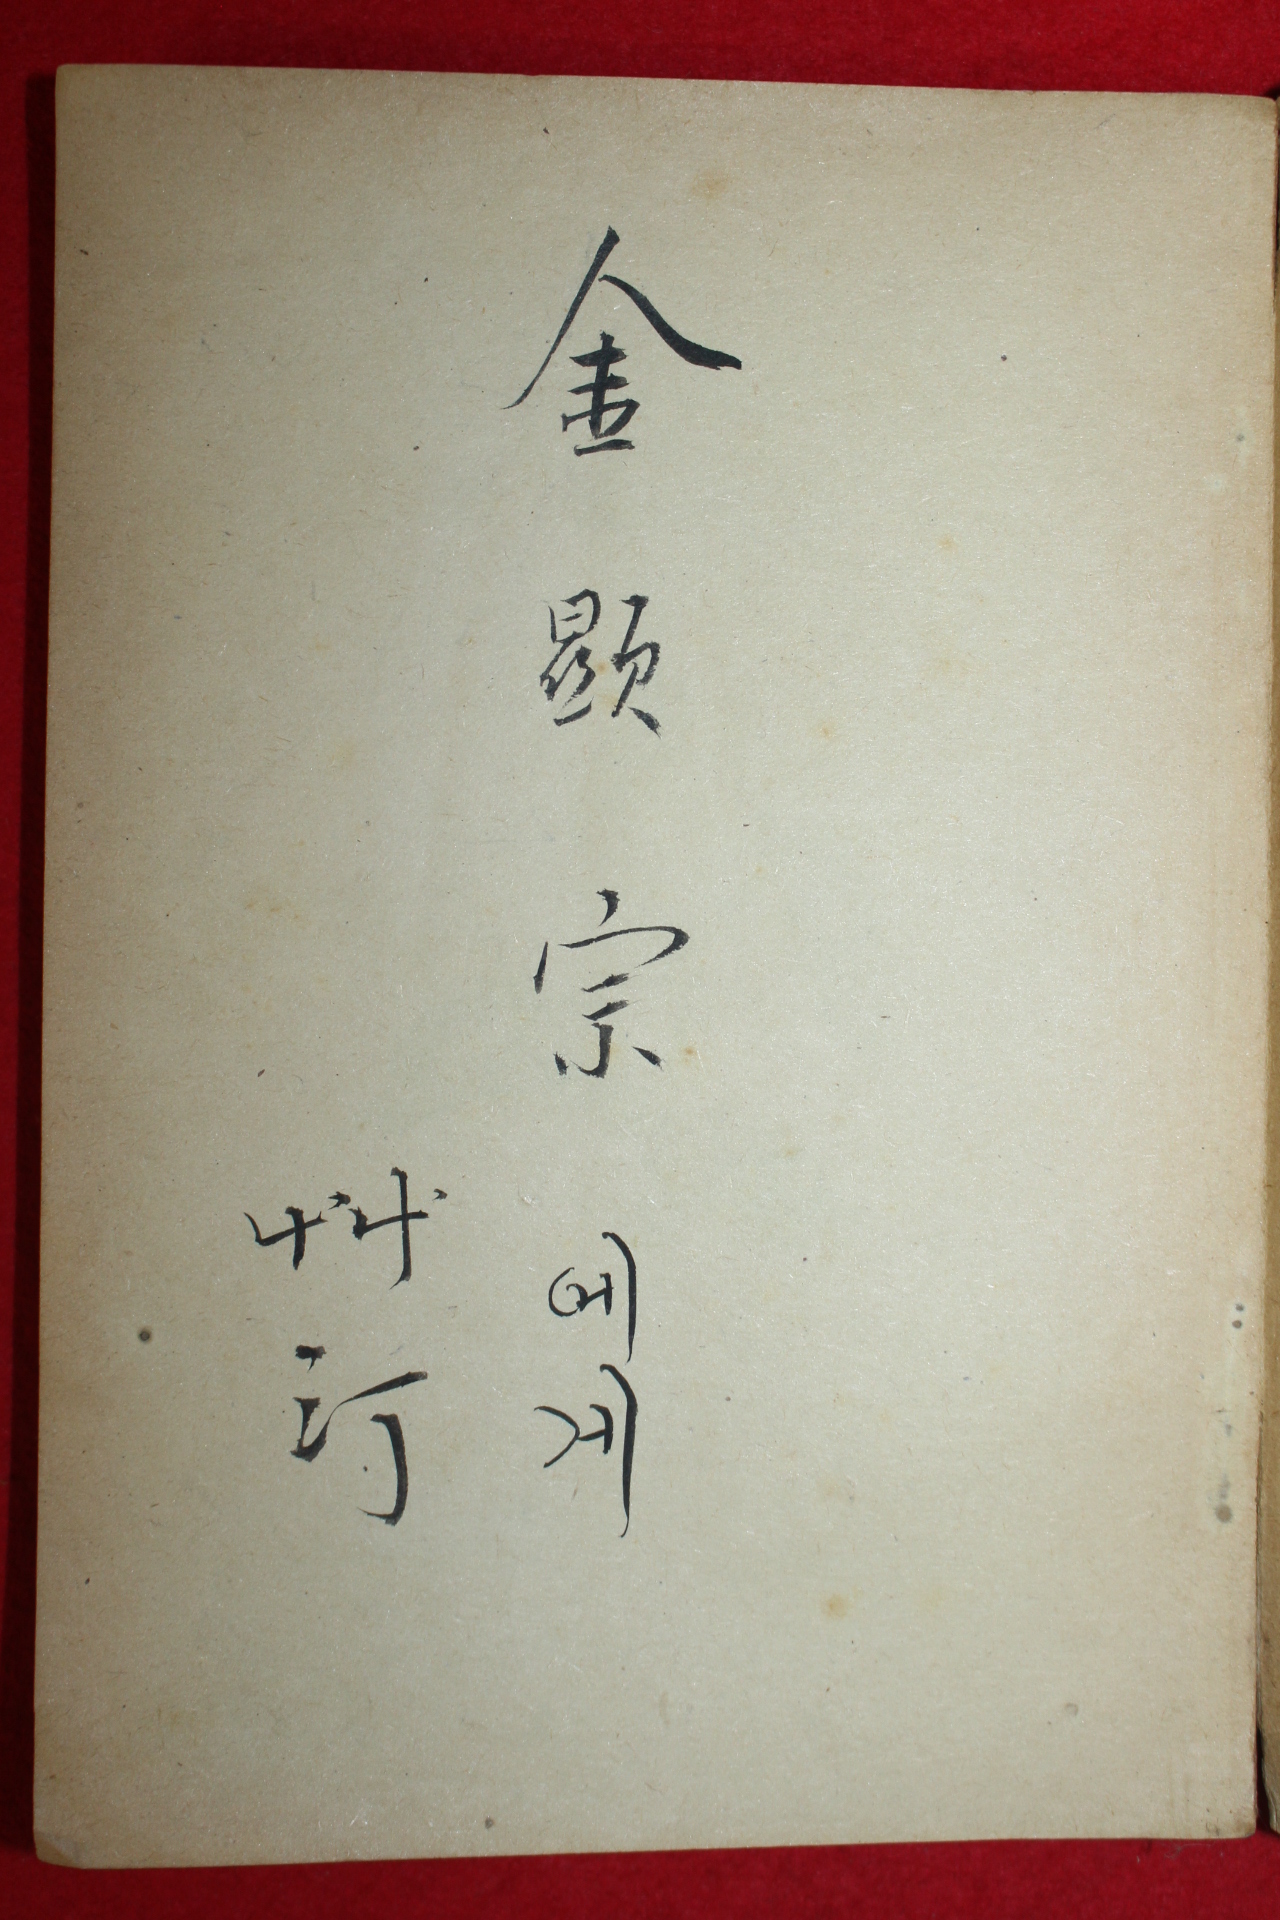 金顯宗에게
艸汀